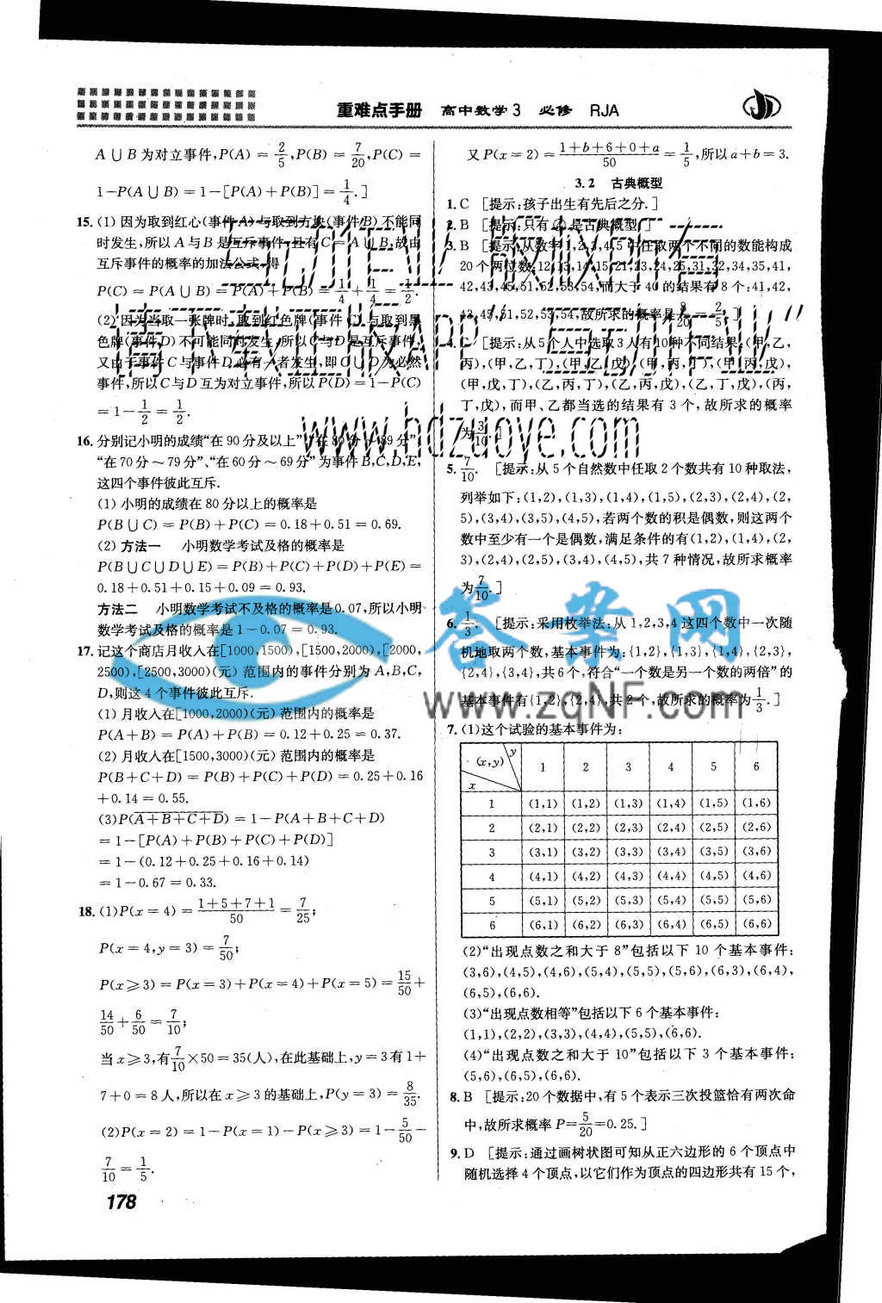 重难点手册 高中数学3 必修 RJA
A∪B为对立事件,P(A)=2/5,P(B)=7/20,P(C)=
1-P(A∪B)=1-[P(A)+P(B)]=1/4.]
15.(1) 因为取到红心(事件A)与取到方块(事件B)不能同
时发生,所以A与B是互斥事件,且有C=A∪B,故由
互斥事件的概率的加法公式,得
P(C)=P(A∪B)=P(A)+P(B)=1/4+1/4=1/2.
(2) 因为当取一张牌时,取到红色牌(事件C)与取到黑
色牌(事件D)不可能同时发生,所以C与D是互斥事件,
又由于事件C与事件D必有一者发生,即C∪D为必然
事件,所以C与D互为对立事件,所以P(D)=1-P(C)
=1-1/2=1/2.
16.分别记小明的成绩“在90分及以上”,“在80分~89分”、
“在70分~79分”、“在60分~69分”为事件B,C,D,E,
这四个事件彼此互斥.
(1) 小明的成绩在80分以上的概率是
P(B∪C)=P(B)+P(C)=0.18+0.51=0.69.
(2) 方法一 小明数学考试及格的概率是
P(B∪C∪D∪E)=P(B)+P(C)+P(D)+P(E)=
0.18+0.51+0.15+0.09=0.93.
方法二 小明数学考试不及格的概率是0.07,所以小明
数学考试及格的概率是1-0.07=0.93.
17.记这个商店月收入在[1000,1500),[1500,2000),[2000,
2500),[2500,3000)(元)范围内的事件分别为A,B,C,
D,则这4个事件彼此互斥.
(1) 月收入在[1000,2000)(元)范围内的概率是
P(A+B)=P(A)+P(B)=0.12+0.25=0.37.
(2) 月收入在[1500,3000)(元)范围内的概率是
P(B+C+D)=P(B)+P(C)+P(D)=0.25+0.16
+0.14=0.55.
(3)P(A̅+̅B̅+̅C̅+̅D̅)=1-P(A+B+C+D)
=1-[P(A)+P(B)+P(C)+P(D)]
=1-(0.12+0.25+0.16+0.14)
=1-0.67=0.33.
18.(1)P(x=4)=(1+5+7+1)/50=7/25;
P(x=4,y=3)=7/50;
P(x≥3)=P(x=3)+P(x=4)+P(x=5)=15/50+
14/50+6/50=7/10;
当x≥3,有7/10×50=35(人),在此基础上,y=3有1+
7+0=8人,所以在x≥3的基础上,P(y=3)=8/35.
(2)P(x=2)=1-P(x=1)-P(x≥3)=1-5/50-
7/10=1/5.
178
又P(x=2)=(1+b+6+0+a)/50=1/5,所以a+b=3.
3.2 古典概型
1.C [提示:孩子出生有先后之分.]
2.B [提示:只有 是古典概型.]
3.B [提示:从数字1,2,3,4,5中任取两个不同的数能构成
20个两位数:12,13,14,15,21,23,24,25,31,32,34,35,41,
42,43,45,51,52,53,54,而大于40的结果有8个:41,42,
43,45,51,52,53,54,故所求的概率是8/20=2/5.]
4. [提示:从5个人中选取3人有10种不同结果:(甲,乙,
丙),(甲,乙,丁),(甲,乙,戊),(甲,丙,丁),(甲,丙,戊),
(甲,戊,丁),(乙,丙,丁),(乙,丙,戊),(乙,丁,戊),(丙,
丁,戊),而甲、乙都当选的结果有3个,故所求的概率
为3/10.]
5.7/10. [提示:从5个自然数中任取2个数共有10种取法,
列举如下:(1,2),(1,3),(1,4),(1,5),(2,3),(2,4),(2,
5),(3,4),(3,5),(4,5),若两个数的积是偶数,则这两个
数中至少有一个是偶数,满足条件的有(1,2),(1,4),(2,
3),(2,4),(2,5),(3,4),(4,5),共7种情况,故所求概率
为7/10.]
6.1/3. [提示:采用枚举法:从1,2,3,4这四个数中一次随
机地取两个数,基本事件为:{1,2},{1,3},{1,4},{2,3},
{2,4},{3,4},共6个,符合“一个数是另一个数的两倍”的
基本事件有{1,2},{2,4},共2个,故所求的概率为1/3.]
7.(1)这个试验的基本事件为:
(x,y) y x 1 2 3 4 5 6
1 (1,1) (1,2) (1,3) (1,4) (1,5) (1,6)
2 (2,1) (2,2) (2,3) (2,4) (2,5) (2,6)
3 (3,1) (3,2) (3,3) (3,4) (3,5) (3,6)
4 (4,1) (4,2) (4,3) (4,4) (4,5) (4,6)
5 (5,1) (5,2) (5,3) (5,4) (5,5) (5,6)
6 (6,1) (6,2) (6,3) (6,4) (6,5) (6,6)
(2)“出现点数之和大于8”包括以下10个基本事件:
(3,6),(4,5),(4,6),(5,4),(5,5),(5,6),(6,3),(6,4),
(6,5),(6,6).
(3)“出现点数相等”包括以下6个基本事件:
(1,1),(2,2),(3,3),(4,4),(5,5),(6,6).
(4)“出现点数之和大于10”包括以下3个基本事件:
(5,6),(6,5),(6,6).
8.B [提示:20个数据中,有5个表示三次投篮恰有两次命
中,故所求概率P=5/20=0.25.]
9.D [提示:通过画树状图可知从正六边形的6个顶点中
随机选择4个顶点,以它们作为顶点的四边形共有15个,
互动作业 版权所有
请下载正版APP“互动作业”
www.hdzuoye.com
答案网
www.zqNF.com